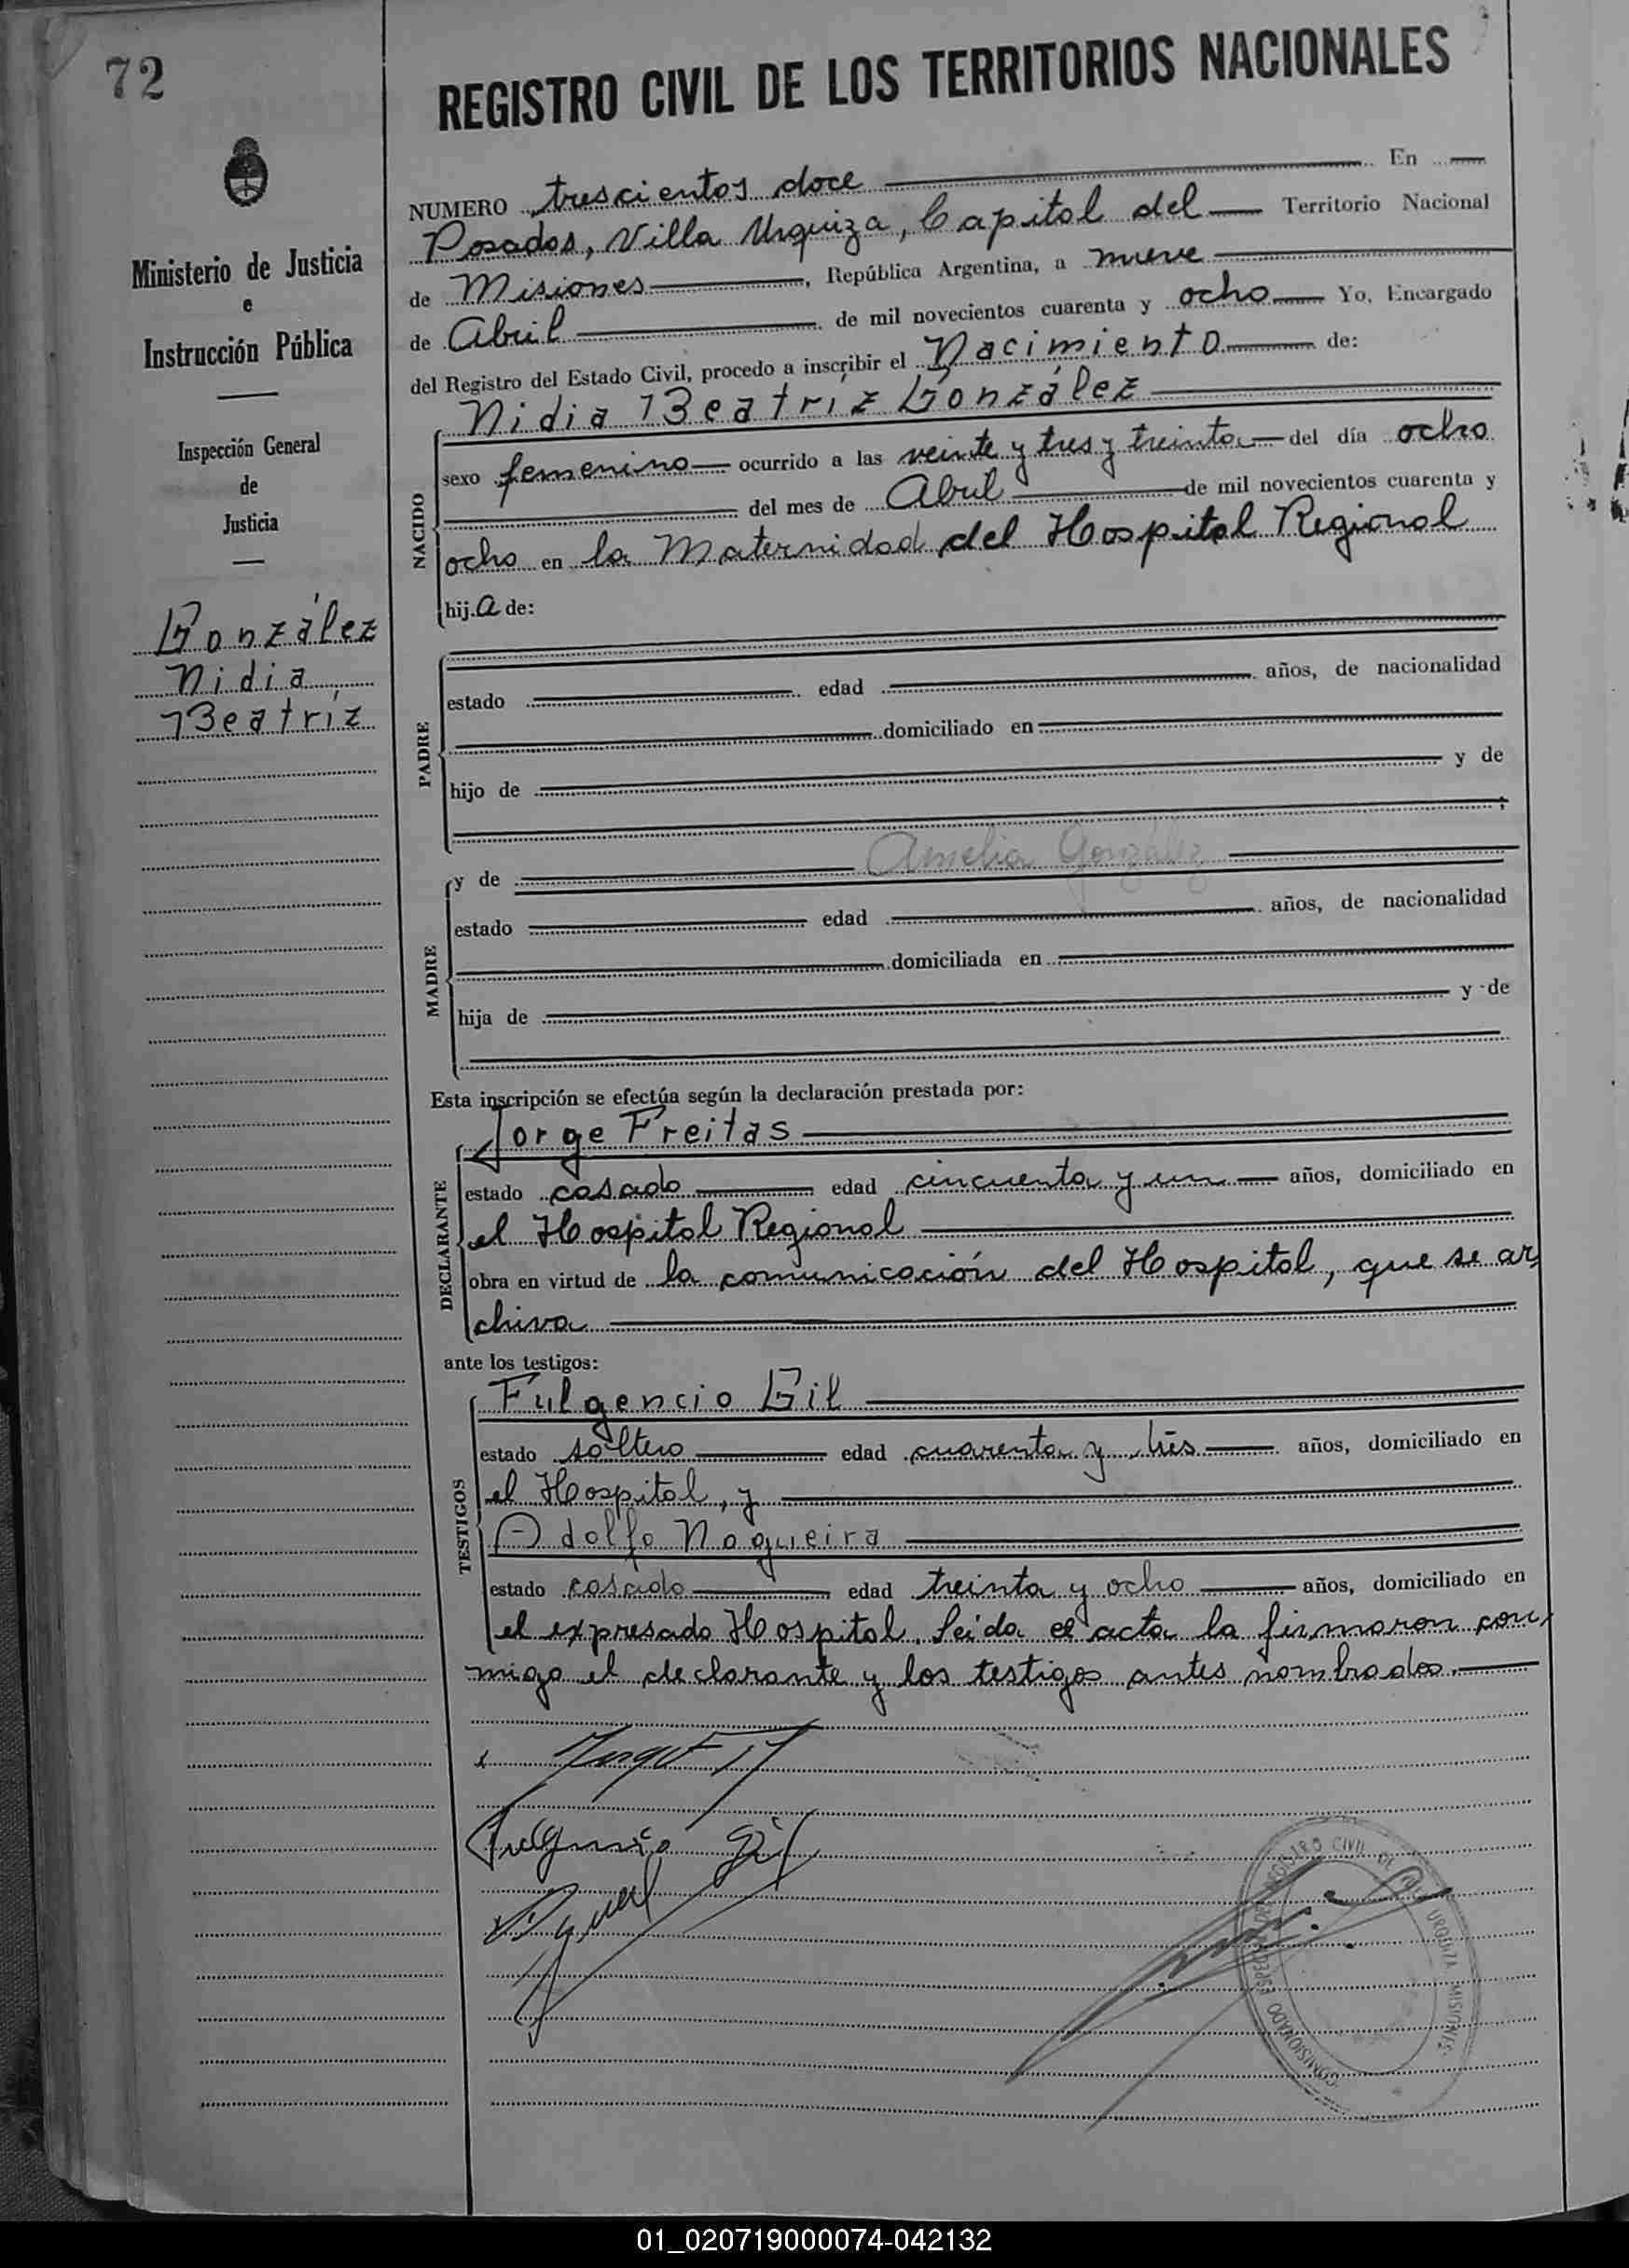 72
REGISTRO CIVIL DE LOS TERRITORIOS NACIONALES
Ministerio de Justicia
e
Instrucción Pública
Inspección General
de
Justicia
González
Nidia
Beatríz
NUMERO trescientos doce En
Posadas, Villa Urquiza, Capital del Territorio Nacional
de Misiones, República Argentina, a nueve
de Abril de mil novecientos cuarenta y ocho Yo, Encargado
del Registro del Estado Civil, procedo a inscribir el Nacimiento de:
NACIDO
Nidia Beatríz González
sexo femenino ocurrido a las veinte y tres y treinta del día ocho
del mes de Abril de mil novecientos cuarenta y
ocho en la Maternidad del Hospital Regional
hija de:
PADRE
estado edad años, de nacionalidad
domiciliado en
hijo de y de
;
MADRE
y de Amelia González
estado edad años, de nacionalidad
domiciliada en
hija de y de
Esta inscripción se efectúa según la declaración prestada por:
DECLARANTE
Jorge Freitas
estado casado edad cincuenta y un años, domiciliado en
el Hospital Regional
obra en virtud de la comunicación del Hospital, que se ar
chiva
ante los testigos:
TESTIGOS
Fulgencio Gil
estado soltero edad cuarenta y trés años, domiciliado en
el Hospital, y
Adolfo Nogueira
estado casado edad treinta y ocho años, domiciliado en
el expresado Hospital. Leída el acta la firmaron con
migo el declarante y los testigos antes nombrados.
Fulgencio Gil
COMISIONADO ESPECIAL DEL REGISTRO CIVIL DE URQUIZA MISIONES
01_020719000074-042132